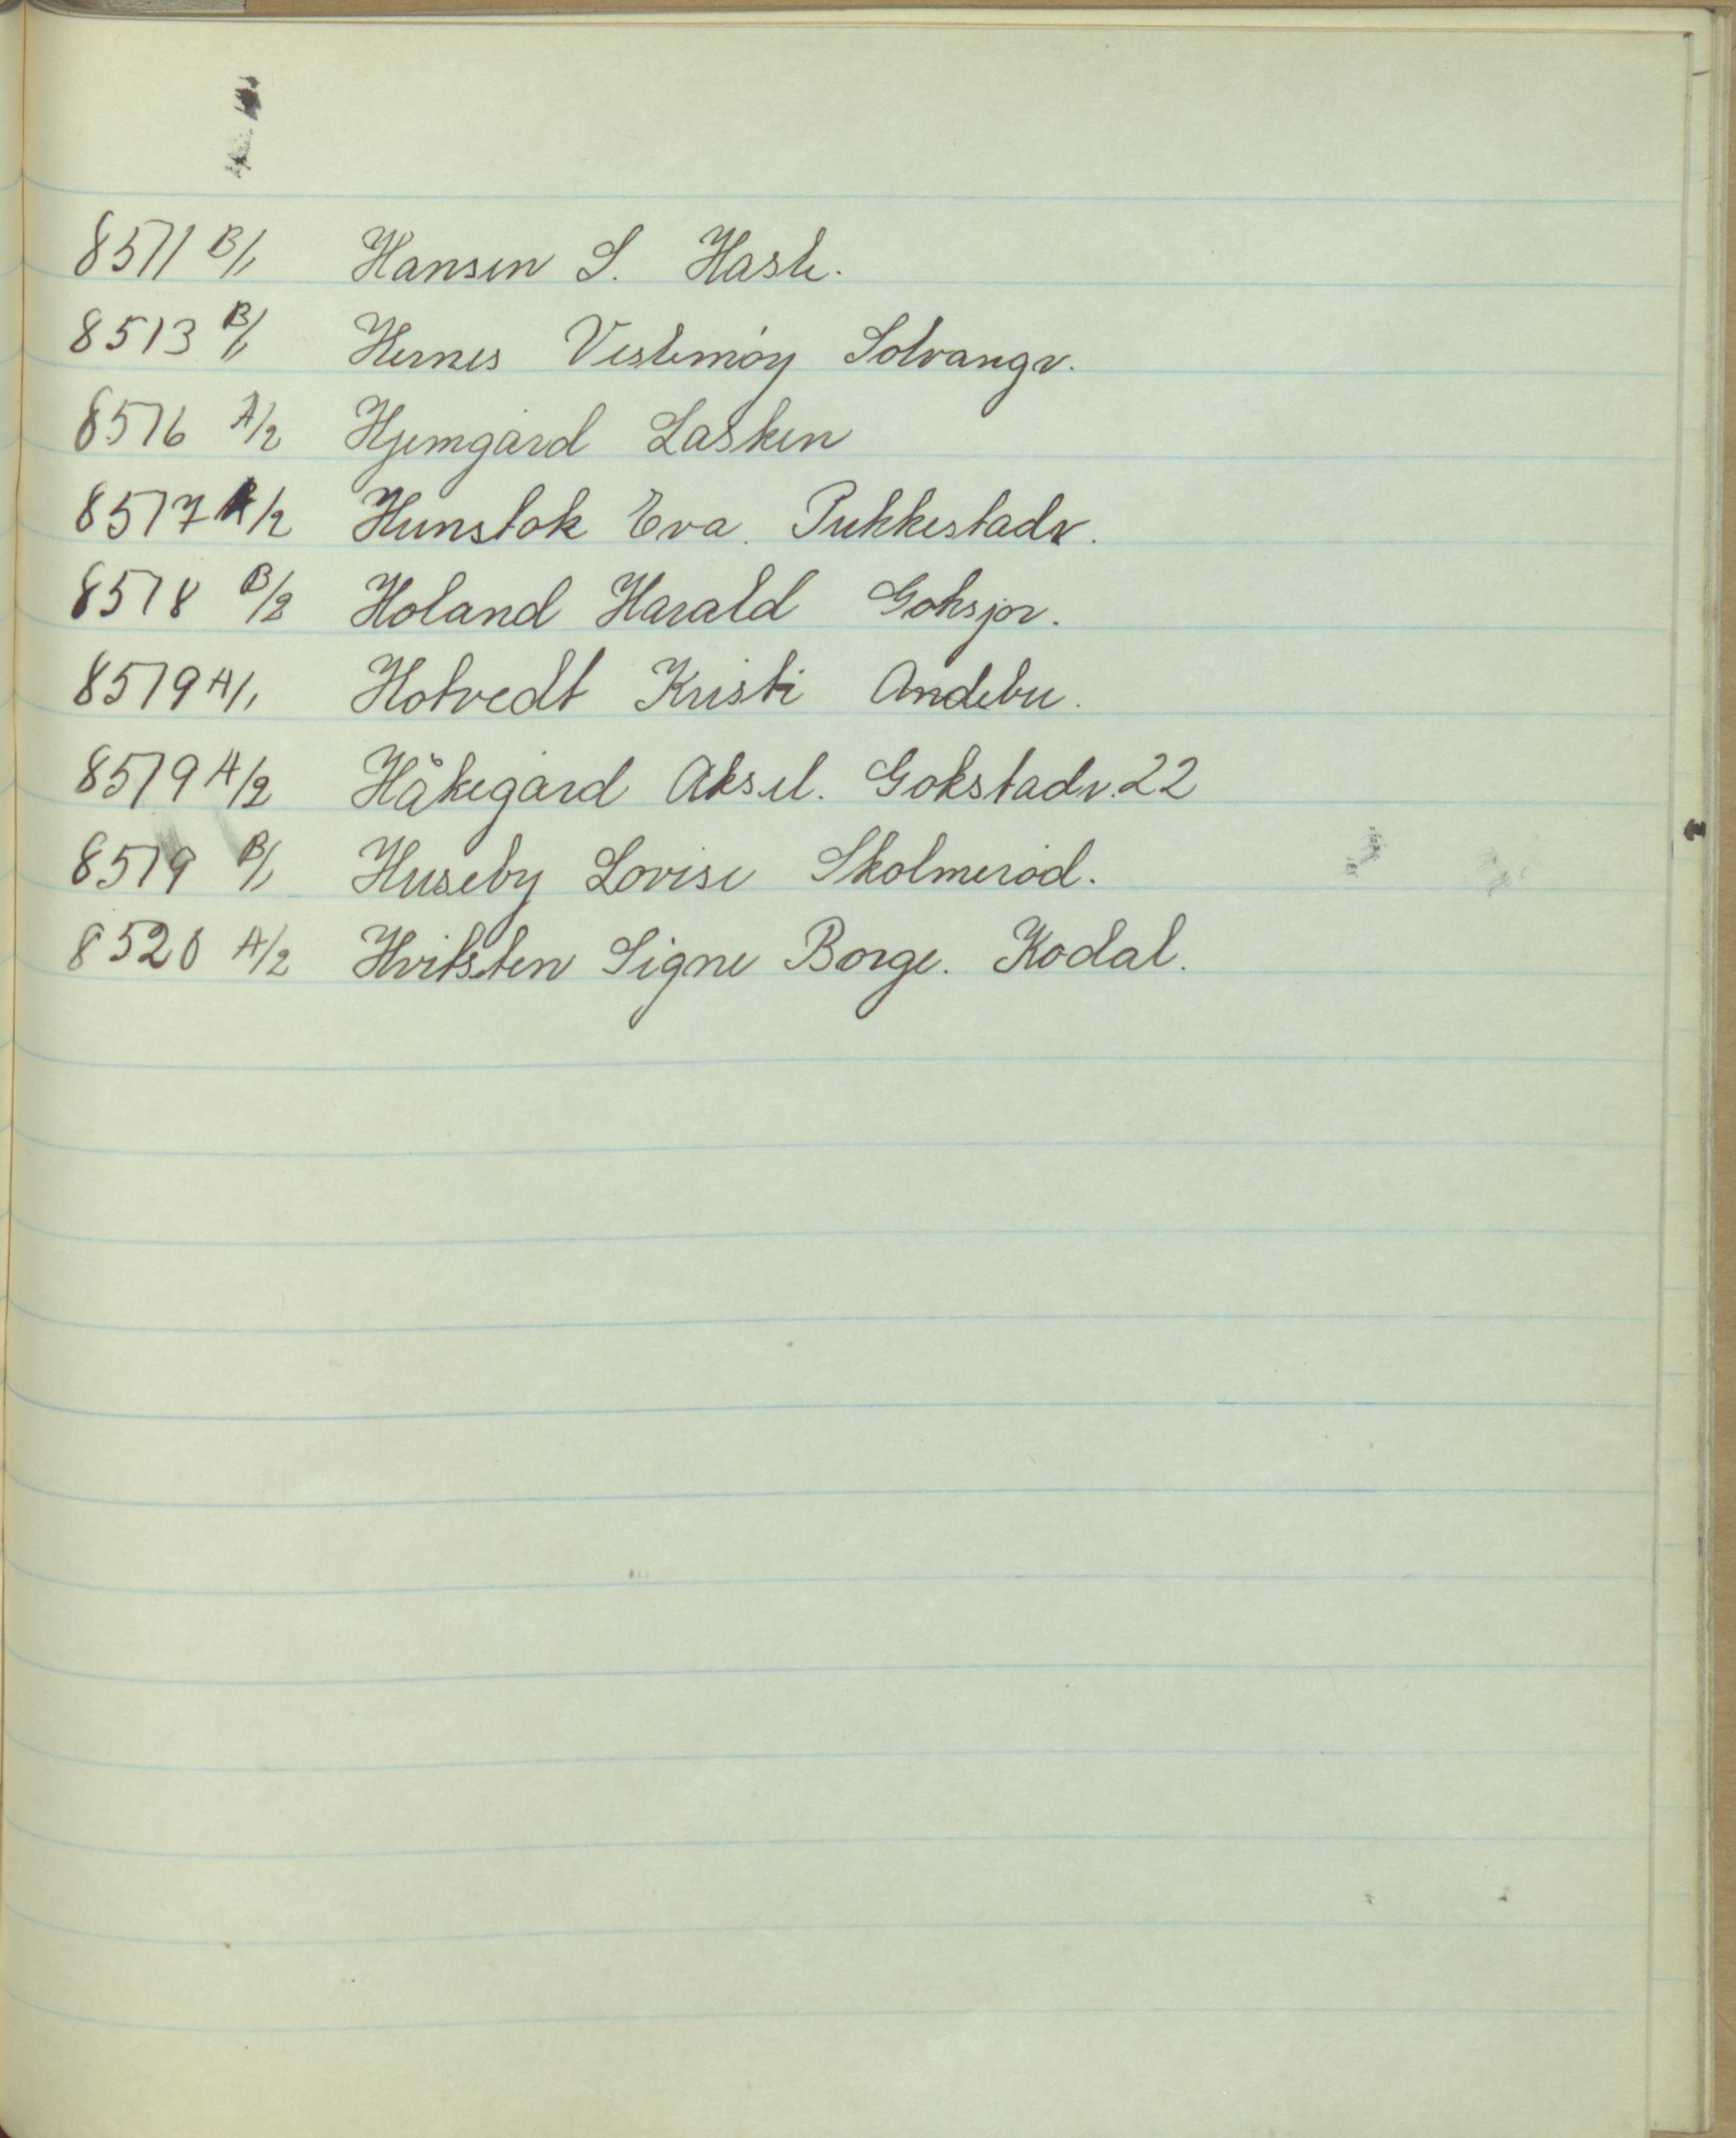 8511 B/1 Hansen S. Hasle.
8513 B/1 Hernes Vestemøy Solvangv.
8516 A/2 Hjemgård Lasken
8517 A/2 Hunstok Eva. Pukkestadv.
8518 B/2 Holand Harald Goksjør.
8519 A/1 Hotvedt Kristi Andebu.
8519 A/2 Håkegård Aksel. Gokstadv. 22
8519 B/1 Huseby Lovise Skolmerød.
8520 A/2 Hvitsten Signe Borge. Kodal.